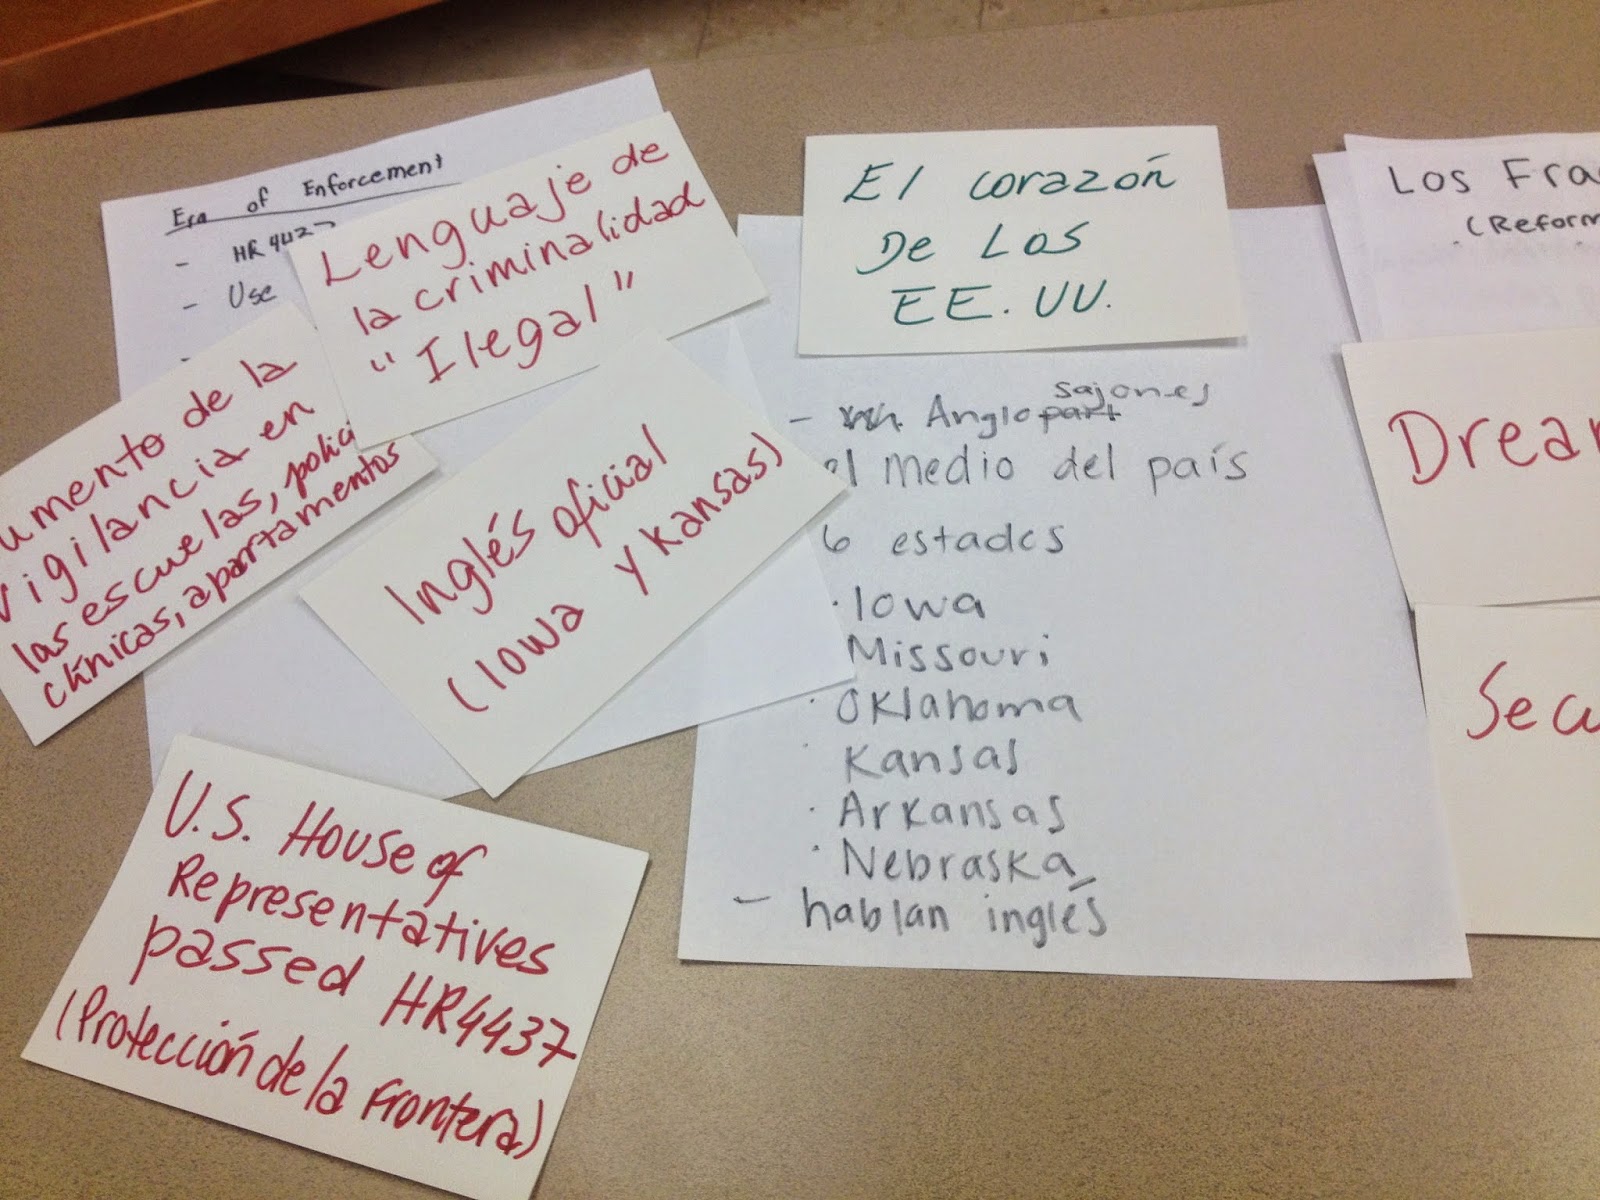 Era of Enforcement
- HR 4437
- Use
-
Lenguaje de
la criminalidad
"Ilegal"
umento de la
vigilancia en
las escuelas, polici
clínicas, apartamentos
Inglés oficial
(Iowa y Kansas)
U.S. House of
Representatives
passed HR4437
(Protección de la Frontera)
El corazón
De Los
EE.UU.
- Anglo sajones
el medio del país
6 estados
· Iowa
Missouri
· Oklahoma
· Kansas
· Arkansas
· Nebraska
- hablan inglés
Los Fra
(Reform
Drea
Secu